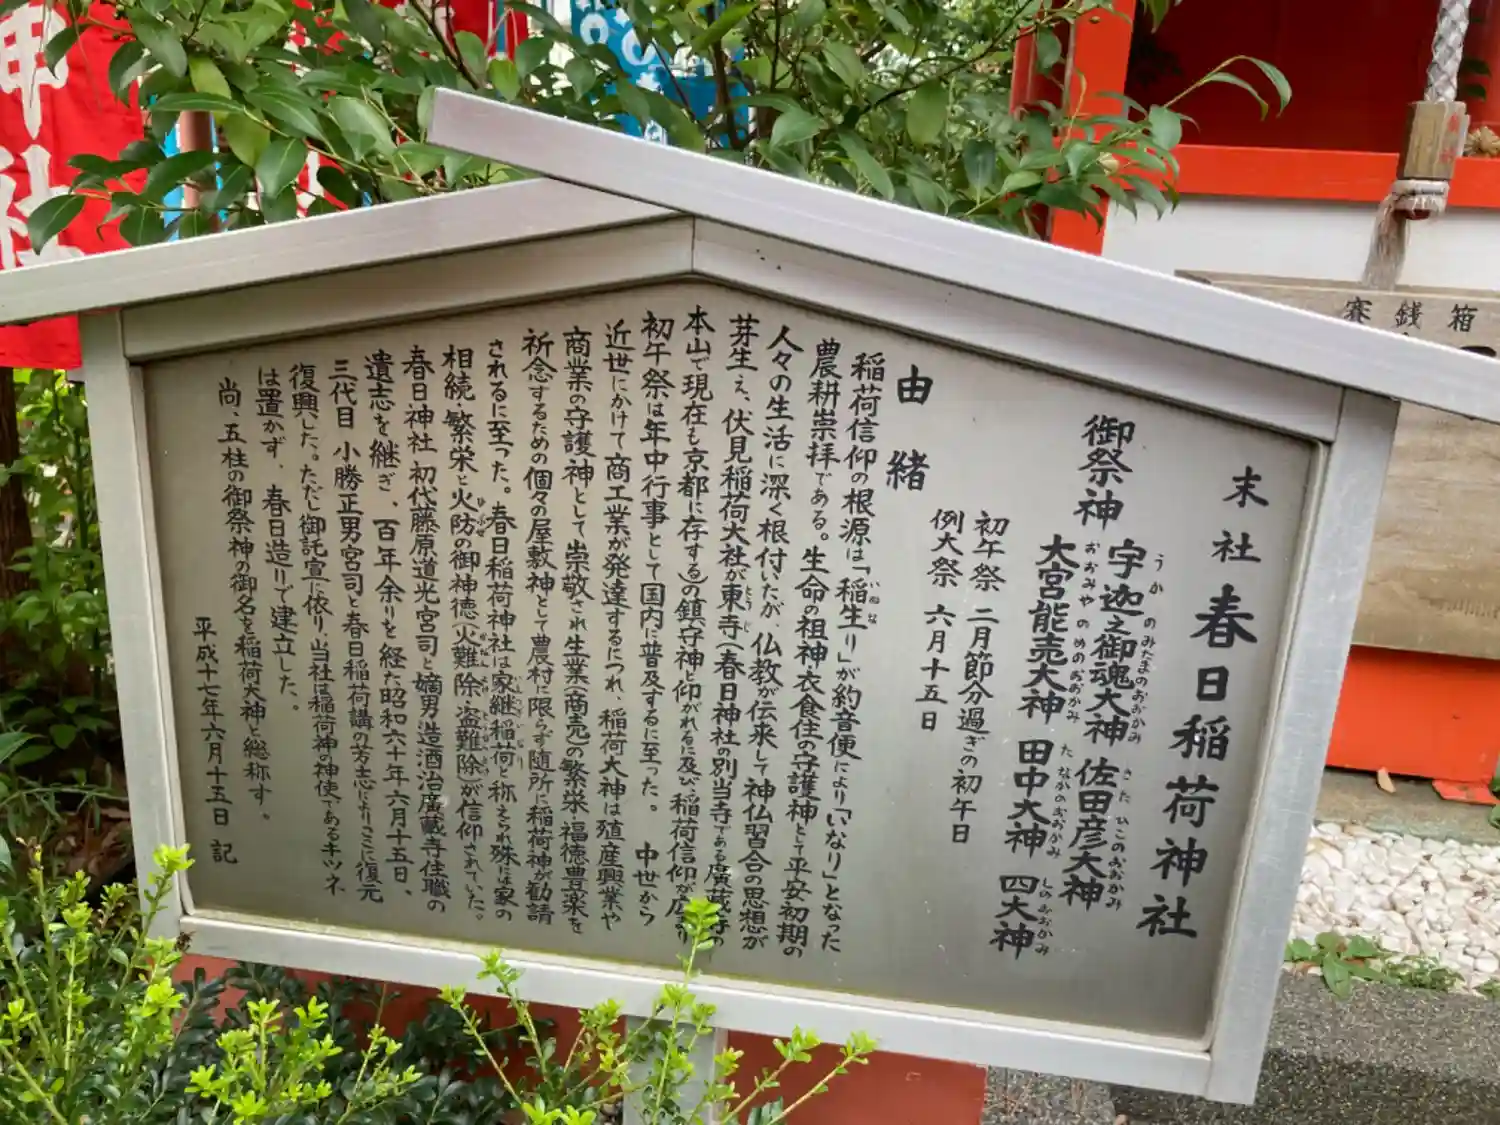 末社 春日稲荷神社
御祭神
宇迦之御魂大神 佐田彦大神
うかのみたまのおおかみ さたひこのおおかみ
大宮能売大神 田中大神 四大神
おおみやのめのおおかみ たなかのおおかみ しのおおかみ
初午祭 二月節分過ぎの初午日
例大祭 六月十五日
由緒
稲荷信仰の根源は「稲生り」が約音便により「いなり」となった
いねな
農耕崇拝である。生命の祖神・衣食住の守護神として平安初期の
人々の生活に深く根付いたが、仏教が伝来して神仏習合の思想が
芽生え、伏見稲荷大社が東寺(春日神社の別当寺である廣蔵寺の
とうじ
本山で現在も京都に存する)の鎮守神と仰がれるに及び、稲荷信仰が
初午祭は年中行事として国内に普及するに至った。 中世から
近世にかけて商工業が発達するにつれ、稲荷大神は殖産興業や
商業の守護神として崇敬され生業(商売)の繁栄・福徳豊楽を
祈念するための個々の屋敷神として農村に限らず随所に稲荷神が勧請
されるに至った。春日稲荷神社は家継稲荷と称えられ殊には家の
相続・繁栄と火防の御神徳(火難除・盗難除)が信仰されていた。
ひぶせ
春日神社 初代藤原道光宮司と嫡男造酒治廣蔵寺住職の
遺志を継ぎ、百年余りを経た昭和六十年六月十五日、
三代目 小勝正男宮司と春日稲荷講の芳志によりさらに復元
復興した。ただし御託宣に依り、当社は稲荷神の神使であるキツネ
は置かず、春日造りで建立した。
尚、五柱の御祭神の御名を稲荷大神と総称す。
平成十七年六月十五日 記
賽銭箱
神社